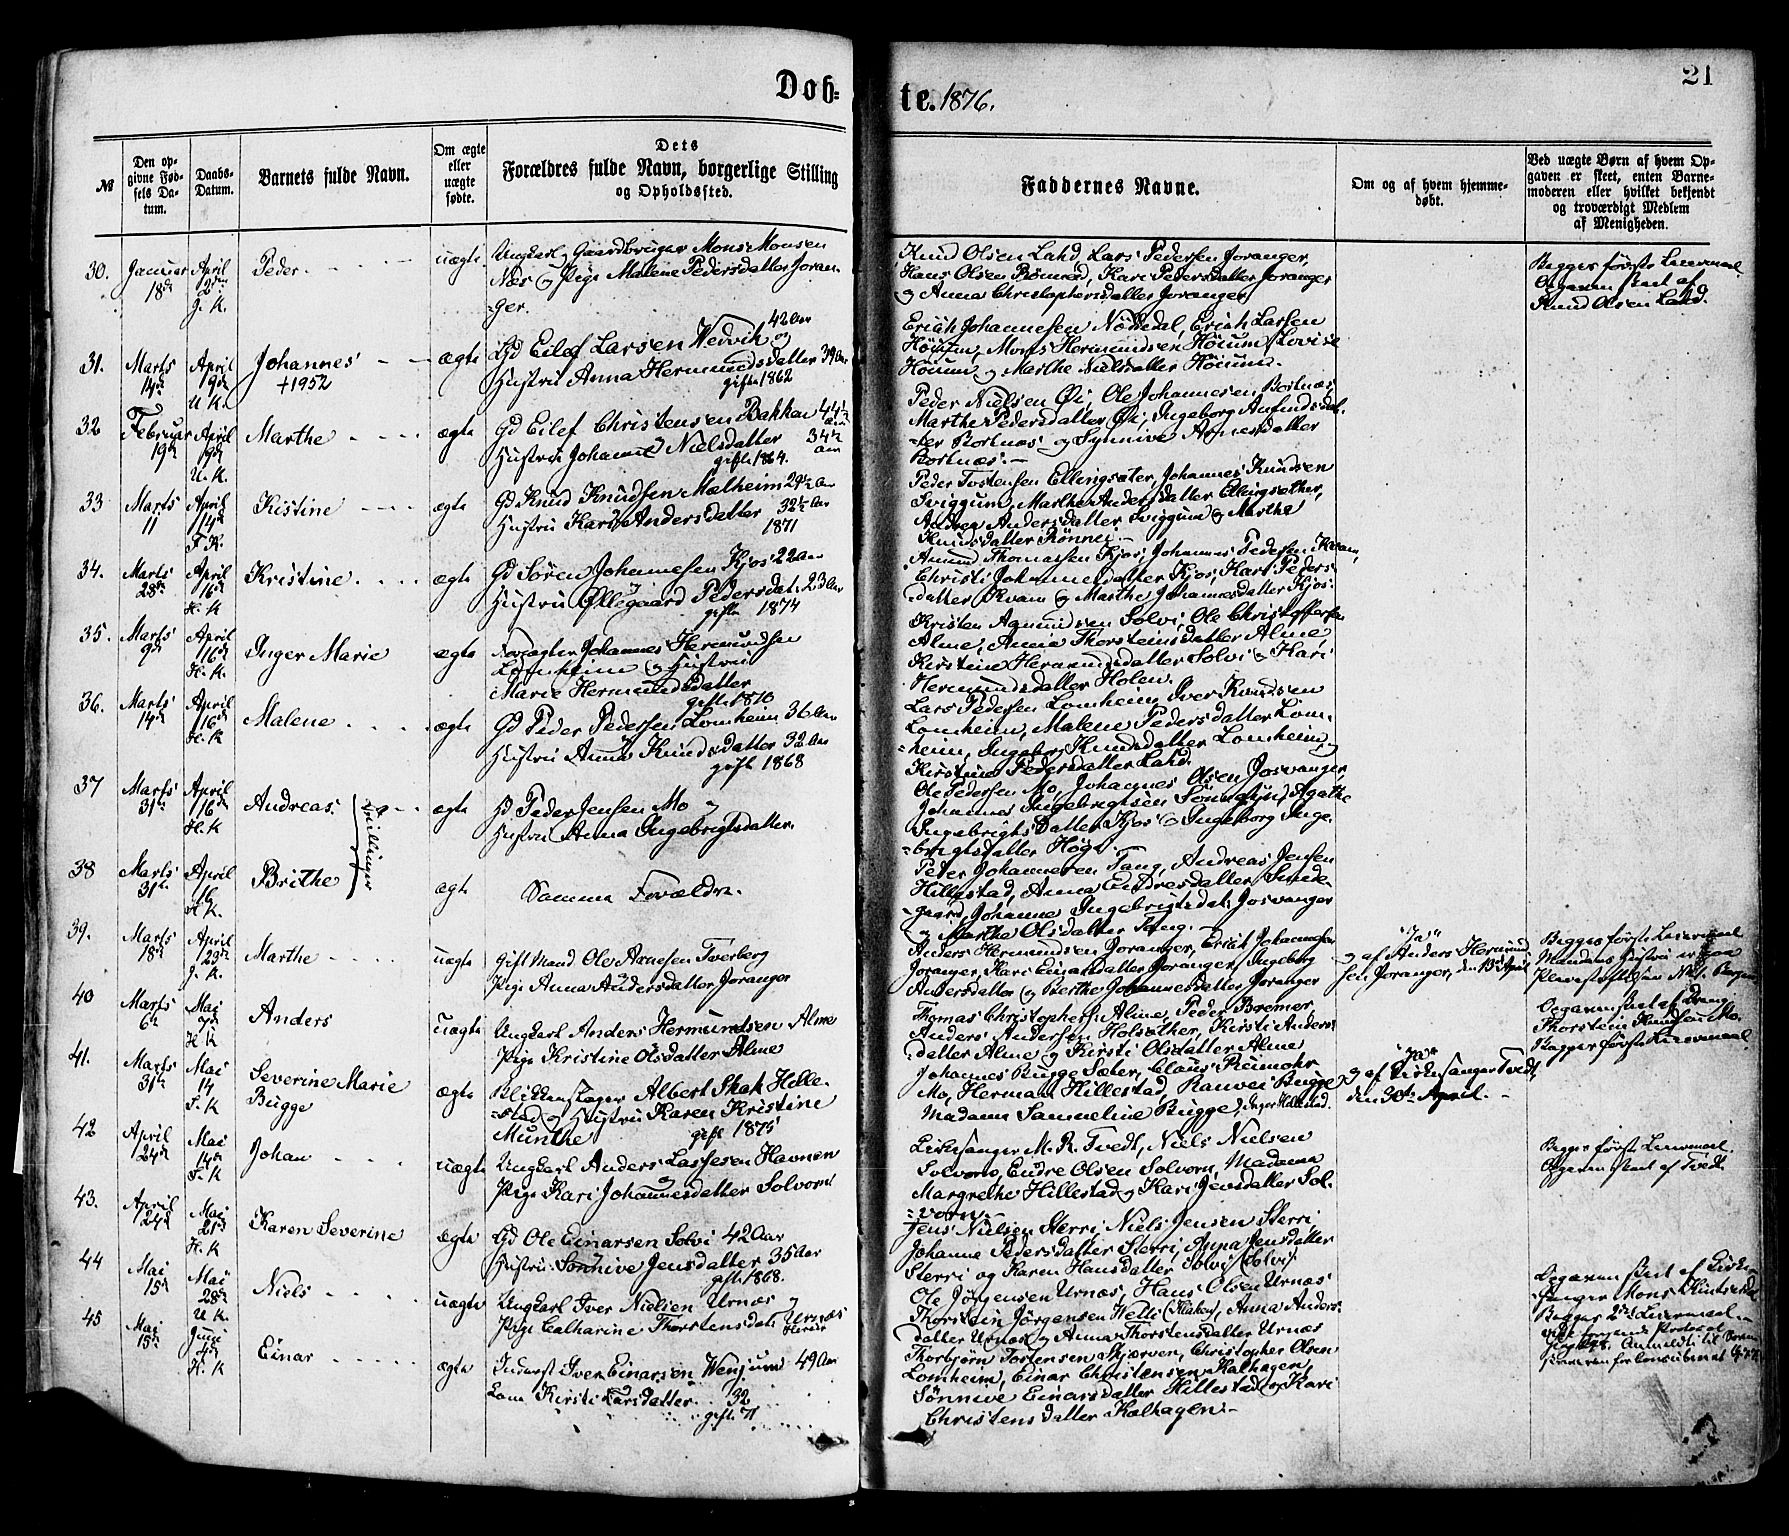 Dob=
te. 1876.
21
№
Den op-
givne Fød-
sels Da-
tum.
Daabs-
Datum.
Barnets fulde Navn.
Om ægte
eller
uægte
fødte.
Dets
Forældres fulde Navn, borgerlige Stilling
og Opholdssted.
Faddernes Navne.
Om og af hvem hjemme-
døbt.
Ved uægte Børn af hvem Op-
gaven er skeet, enten Barne-
moderen eller hvilket bekjendt
og troværdigt Medlem
af Menigheden.
30. Januar 18de April 2den J. K. Peder uægte
Ungkarl Gaardbruger Mons Monsen
Næs og Pige Malene Pedersdatter Joran-
ger.
Knud Olsen Lahd, Lars Pedersen Joranger,
Hans Olsen Rømmed, Kari Pedersdatter Joranger
og Anna Christophersdatter Joranger
Begges første Leiermaal
Opgaven skeet af
Knud Olsen Lahd.
31. Marts 14de April 9de U. K. Johannes +1952 ægte
Gd Eilef Larsen Vedvik 42 Aar og
Hustru Anna Hermundsdatter 39 Aar
gifte 1862
Erich Johannesen Nøttedal, Erich Larsen
Høium, Mons Hermundsen Høium, Lovise
Høium og Marthe Nielsdatter Høium.
32 Februar 19de April 9de U. K. Marthe ægte
Gd Eilef Christensen Bakken 44½ Aar
Hustru Johanne Nielsdatter 34½ Aar
gifte 1864.
Peder Nielsen Øi, Ole Johannesen Bortnæs,
Marthe Pedersdatter Øi, Ingeborg Amundsdat-
ter Bortnæs og Synnive Arnesdatter
Bortnæs.
33 Marts 11 April 14de F. K. Kristine ægte
Gd Knud Knudsen Mælheim 29½ Aar
Hustru Kari Andersdatter 32½ Aar
1871
Peder Tostensen Ellingsæter, Johannes Knudsen
Sviggum, Marthe Andersdatter Ellingsæther,
Andrea Andersdatter Sviggum og Marthe
Knudsdatter Rønnei.
34. Marts 28de April 16de H. K. Kristine ægte
Gd Søren Johannesen Kjos 22 Aar
Hustru Øllegaard Pedersdat. 23 Aar
gifte 1874
Amund Thomassen Kjos, Johannes Pedersen Kvam,
Christi Johannesdatter Kjos, Kari Peders-
datter Kvam og Marthe Johannesdatter Kjos.
35. Marts 9de April 16de H. K. Inger Marie ægte
Johannes Hermundsen
Lomheim og Hustru
Marie Hermundsdatter
gifte 1870
Kristen Aamundsen Solvi, Ole Christoffersen
Alme, Anna Thorsteinsdatter Alme
Kirstine Hermundsdatter Solvi og Kari
Hermundsdatter Holen.
36. Marts 14de April 16de H. K. Malene ægte
Gd Peder Pedersen Lomheim 36 Aar
Hustru Anna Knudsdatter 32 Aar
gifte 1868
Lars Pedersen Lomheim, Iver Knudsen
Lomheim, Malene Pedersdatter Lom-
heim, Ingeborg Knudsdatter Lomheim og
Kirstine Pedersdatter Lahd.
37 Marts 31te April 16de H. K. Andreas. Tvillinger ægte
Gd Peder Jensen Mo og
Hustru Anna Ingebrigtsdatter.
Ole Pedersen Mo, Johannes Olsen Josvanger,
Johannes Ingebrigtsen Sønnesyn, Agathe
Ingebrigtsdatter Kjos og Ingeborg Inge-
brigtsdatter Høgi
38 Marts 31te April 16 H. K. Brithe ægte
Samme Forældre.
Peder Johannesen Tang, Andreas Jensen
Hillestad, Anna Endresdatter Sande-
gaard, Johanne Ingebrigtsdat. Josvanger
og Marthe Olsdatter Tang.
39. Marts 18de April 23de J. K. Marthe uægte
Gift Mand Ole Arnesen Tverberg
Pige Anna Andersdatter Joranger
Anders Hermundsen Joranger, Erich Johannesen
Joranger, Kari Einarsdatter Joranger, Ingeborg
Andersdatter og Berthe Johannesdatter Joranger
"Ja"
og af Anders Hermund-
sen Joranger, den 13de April
Begges første Leiermaal
Mandens Hustru er paa
Pleiestiftelsen No 1. Bergen
40 Marts 6te Mai 7de H K Anders uægte
Ungkarl Anders Hermundsen Alme
Pige Kristine Olsdatter Alme
Thomas Christophersen Alme, Peder Bremer
Anders Andersen Holsæther, Kirsti Anders-
datter Alme og Kirsti Olsdatter Alme
Opgaven skeet af
Thorstein Knudsen Mo.
Begges første Leiermaal
41. Marts 31te Mai 14 F. K Severine Marie
Bugge ægte
Blikkenslager Albert Skak Hille-
stad og Hustru Karen Kristine
Munthe gift 1875
Johannes Bugge Sæter, Claus Rumohr
Mo, Herman Hillestad, Ranvei Bugge
Madame Sammeline Bugge, Inger Hillestad.
"Ja"
og af Kirkesanger Tvedt,
den 30te April.
42 April 24de Mai 14de F. K Johan uægte
Ungkarl Anders Lassesen Havnen
Pige Kari Johannesdatter Solvorn
Kirkesanger M. R. Tvedt, Niels Nielsen
Solvorn, Endre Olsen Solvorn, Madame
Margrethe Hillestad og Kari Jensdatter Sol-
vorn.
Begges første Leiermaal
Opgaven skeet af Tvedt.
43. April 24de Mai 21de H. K Karen Severine ægte
Gd Ole Einarsen Solvi 42 Aar
Hustru Sønnive Jensdatter 35 Aar
gifte 1868.
Jens Nielsen Sterri, Niels Jensen Sterri,
Johanne Pedersdatter Sterri, Anna Jensdatter
Sterri og Karen Hansdatter Solvi (Solvi)
44 Mai 15de Mai 28de U. K. Niels uægte
Ungkarl Iver Nielsen Urnæs og
Pige Catharine Thorstensdat. Urnæs
Ole Jørgensen Urnæs, Hans Olsen Urnæs
Thorstein Jørgensen Velle (Klakegg), Anna Anders-
datter Urnæs og Anna Thorstensdatter Urnæs
Opgaven skeet af Kirke-
sanger Mons
Begges 2det Leiermaal
45 Mai 15de Juni 4de H. K Einar ægte
Inderst Iver Einarsen Venjum 49 Aar
Kone Kirsti Larsdatter 32
gifte 71
Thorbjørn Tostensen Skjærven, Christopher Olsen
Lomheim, Einar Christensen Kalhagen,
Sønnive Einarsdatter Hillestad og Kari
Christensdatter Kalhagen.